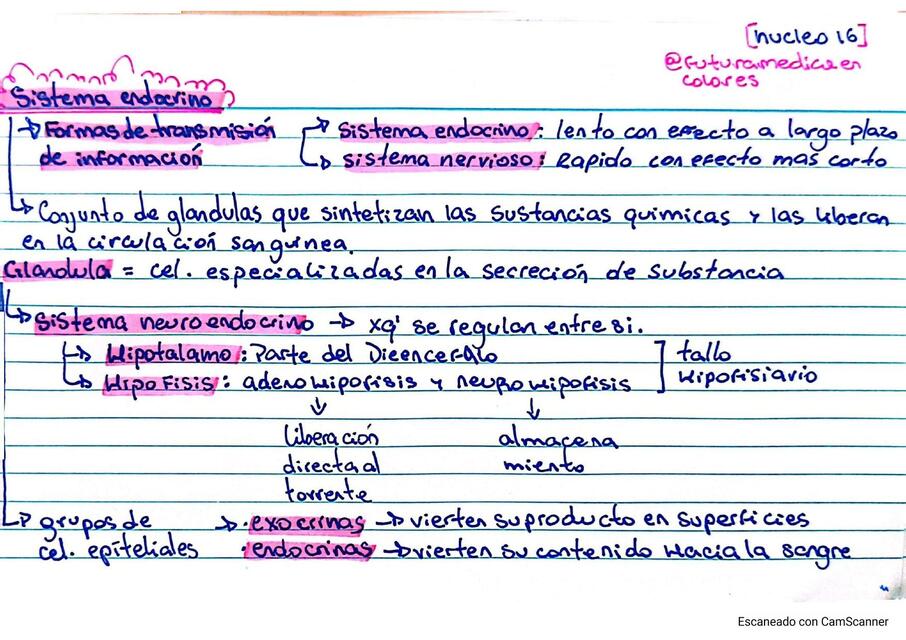 [nucleo 16]
@futuramedica en
colores
Sistema endocrino
→ Formas de transmisión
de información
→ Sistema endocrino: lento con efecto a largo plazo
→ Sistema nervioso: Rapido con efecto mas corto
→ Conjunto de glandulas que sintetizan las sustancias quimicas y las liberan
en la circulación sanguinea.
Glandula = cel. especializadas en la secreción de substancia
→ Sistema neuroendocrino → xq' se regulan entre si.
→ Hipotalamo: Parte del Diencefalo
→ Hipofisis: adenohipofisis y neurohipofisis
] tallo
Hipofisiario
↓ ↓
liberación
directa al
torrente
almacena
miento
→ grupos de
cel. epiteliales
→ · exocrinas → vierten su producto en superficies
· endocrinas → vierten su contenido hacia la sangre
Escaneado con CamScanner